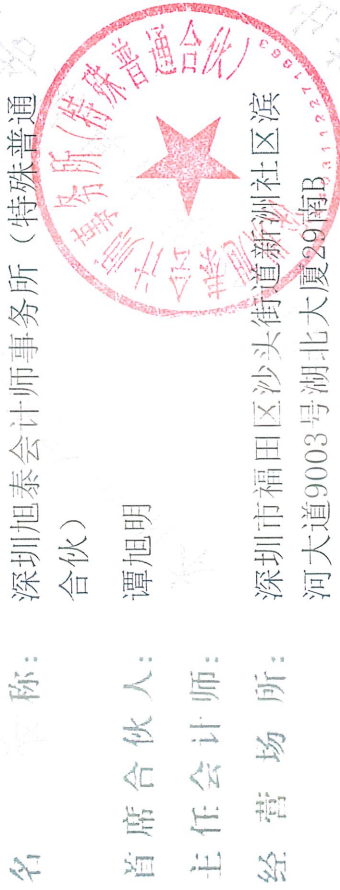 名 称：深圳旭泰会计师事务所（特殊普通
合伙）
首席合伙人：谭旭明
主任会计师：
经营场所：深圳市福田区沙头街道新洲社区滨
河大道9003号湖北大厦29南B
计师事务所（特殊普通合伙）